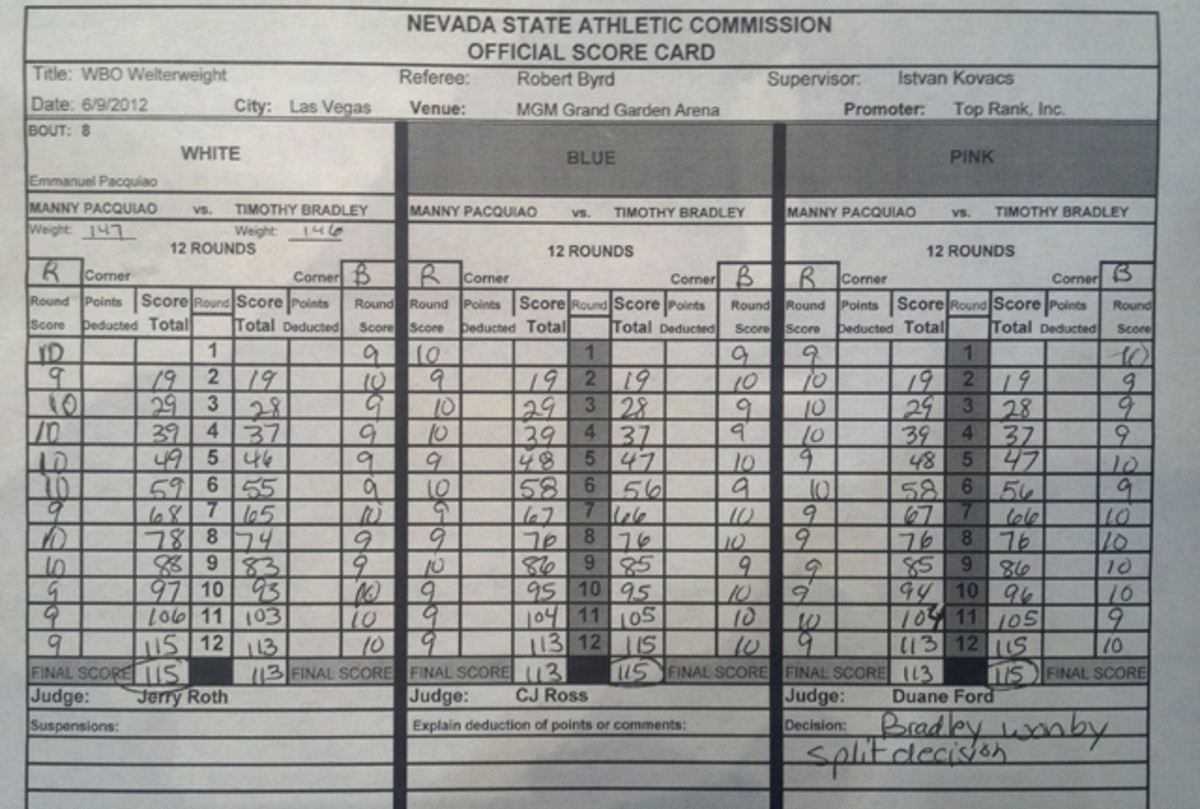 NEVADA STATE ATHLETIC COMMISSION
OFFICIAL SCORE CARD
Title: WBO Welterweight Referee: Robert Byrd Supervisor: Istvan Kovacs
Date: 6/9/2012 City: Las Vegas Venue: MGM Grand Garden Arena Promoter: Top Rank, Inc.
BOUT: 8
WHITE BLUE PINK
Emmanuel Pacquiao
MANNY PACQUIAO vs. TIMOTHY BRADLEY MANNY PACQUIAO vs. TIMOTHY BRADLEY MANNY PACQUIAO vs. TIMOTHY BRADLEY
Weight: 147 Weight: 146
12 ROUNDS 12 ROUNDS 12 ROUNDS
R Corner Corner B R Corner Corner B R Corner Corner B
Round Points Score Round Score Points Round Round Points Score Round Score Points Round Round Points Score Round Score Points Round
Score Deducted Total Total Deducted Score Score Deducted Total Total Deducted Score Score Deducted Total Total Deducted Score
10 1 9 10 1 9 9 1 10
9 19 2 19 10 9 19 2 19 10 10 19 2 19 9
10 29 3 28 9 10 29 3 28 9 10 29 3 28 9
10 39 4 37 9 10 39 4 37 9 10 39 4 37 9
10 49 5 46 9 9 48 5 47 10 9 48 5 47 10
10 59 6 55 9 10 58 6 56 9 10 58 6 56 9
9 68 7 65 10 9 67 7 66 10 9 67 7 66 10
10 78 8 74 9 9 76 8 76 10 9 76 8 76 10
10 88 9 83 9 10 86 9 85 9 9 85 9 86 10
9 97 10 93 10 9 95 10 95 10 9 94 10 96 10
9 106 11 103 10 9 104 11 105 10 10 104 11 105 9
9 115 12 113 10 9 113 12 115 10 9 113 12 115 10
FINAL SCORE 115 113 FINAL SCORE FINAL SCORE 113 115 FINAL SCORE FINAL SCORE 113 115 FINAL SCORE
Judge: Jerry Roth Judge: CJ Ross Judge: Duane Ford
Suspensions: Explain deduction of points or comments: Decision: Bradley won by
split decision